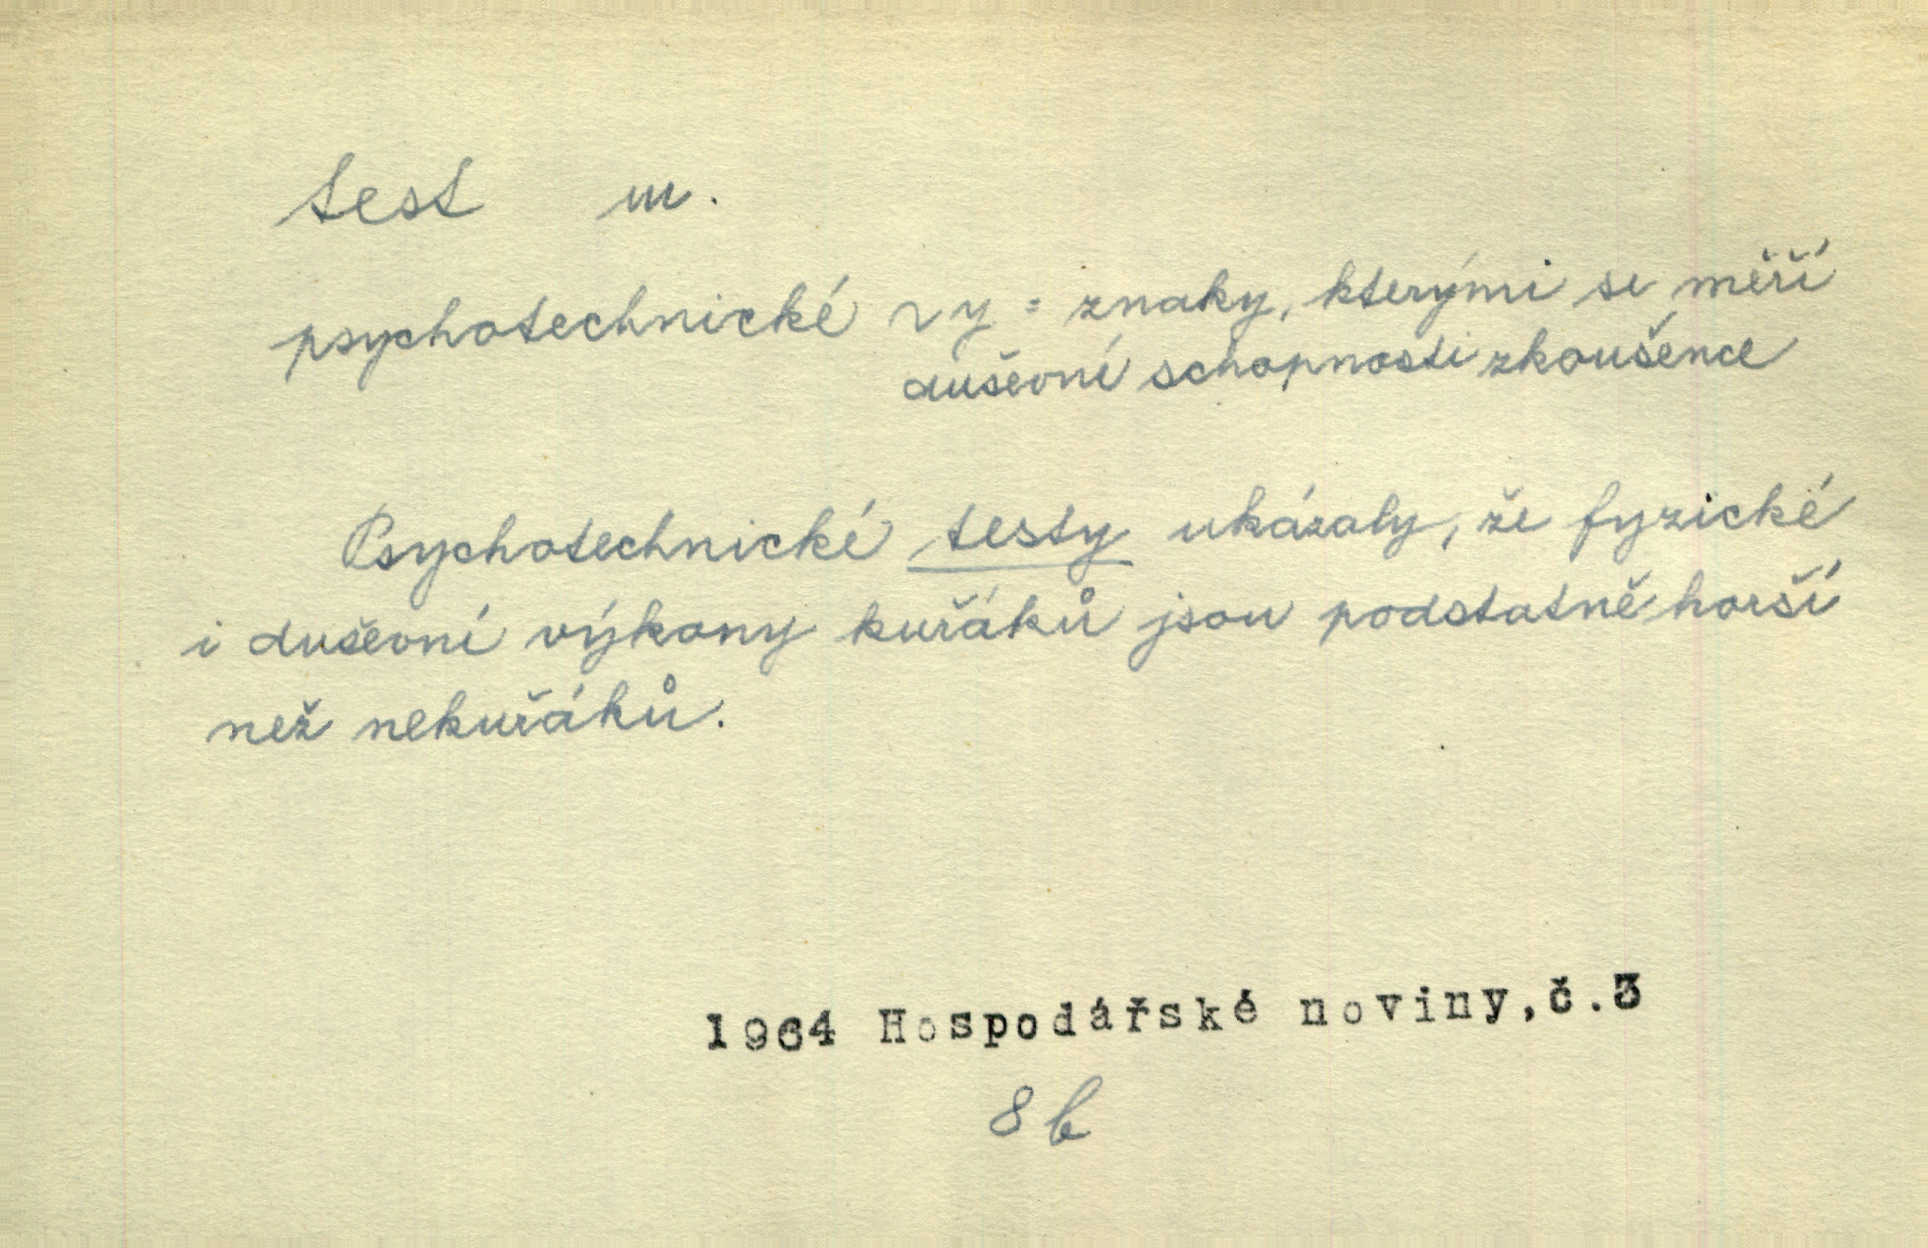 test m.
psychotechnické ~y = znaky, kterými se měří
duševní schopnosti zkoušence
Psychotechnické testy ukázaly, že fyzické
i duševní výkony kuřáků jsou podstatně horší
než nekuřáků.
1964 Hospodářské noviny,č.3
8b